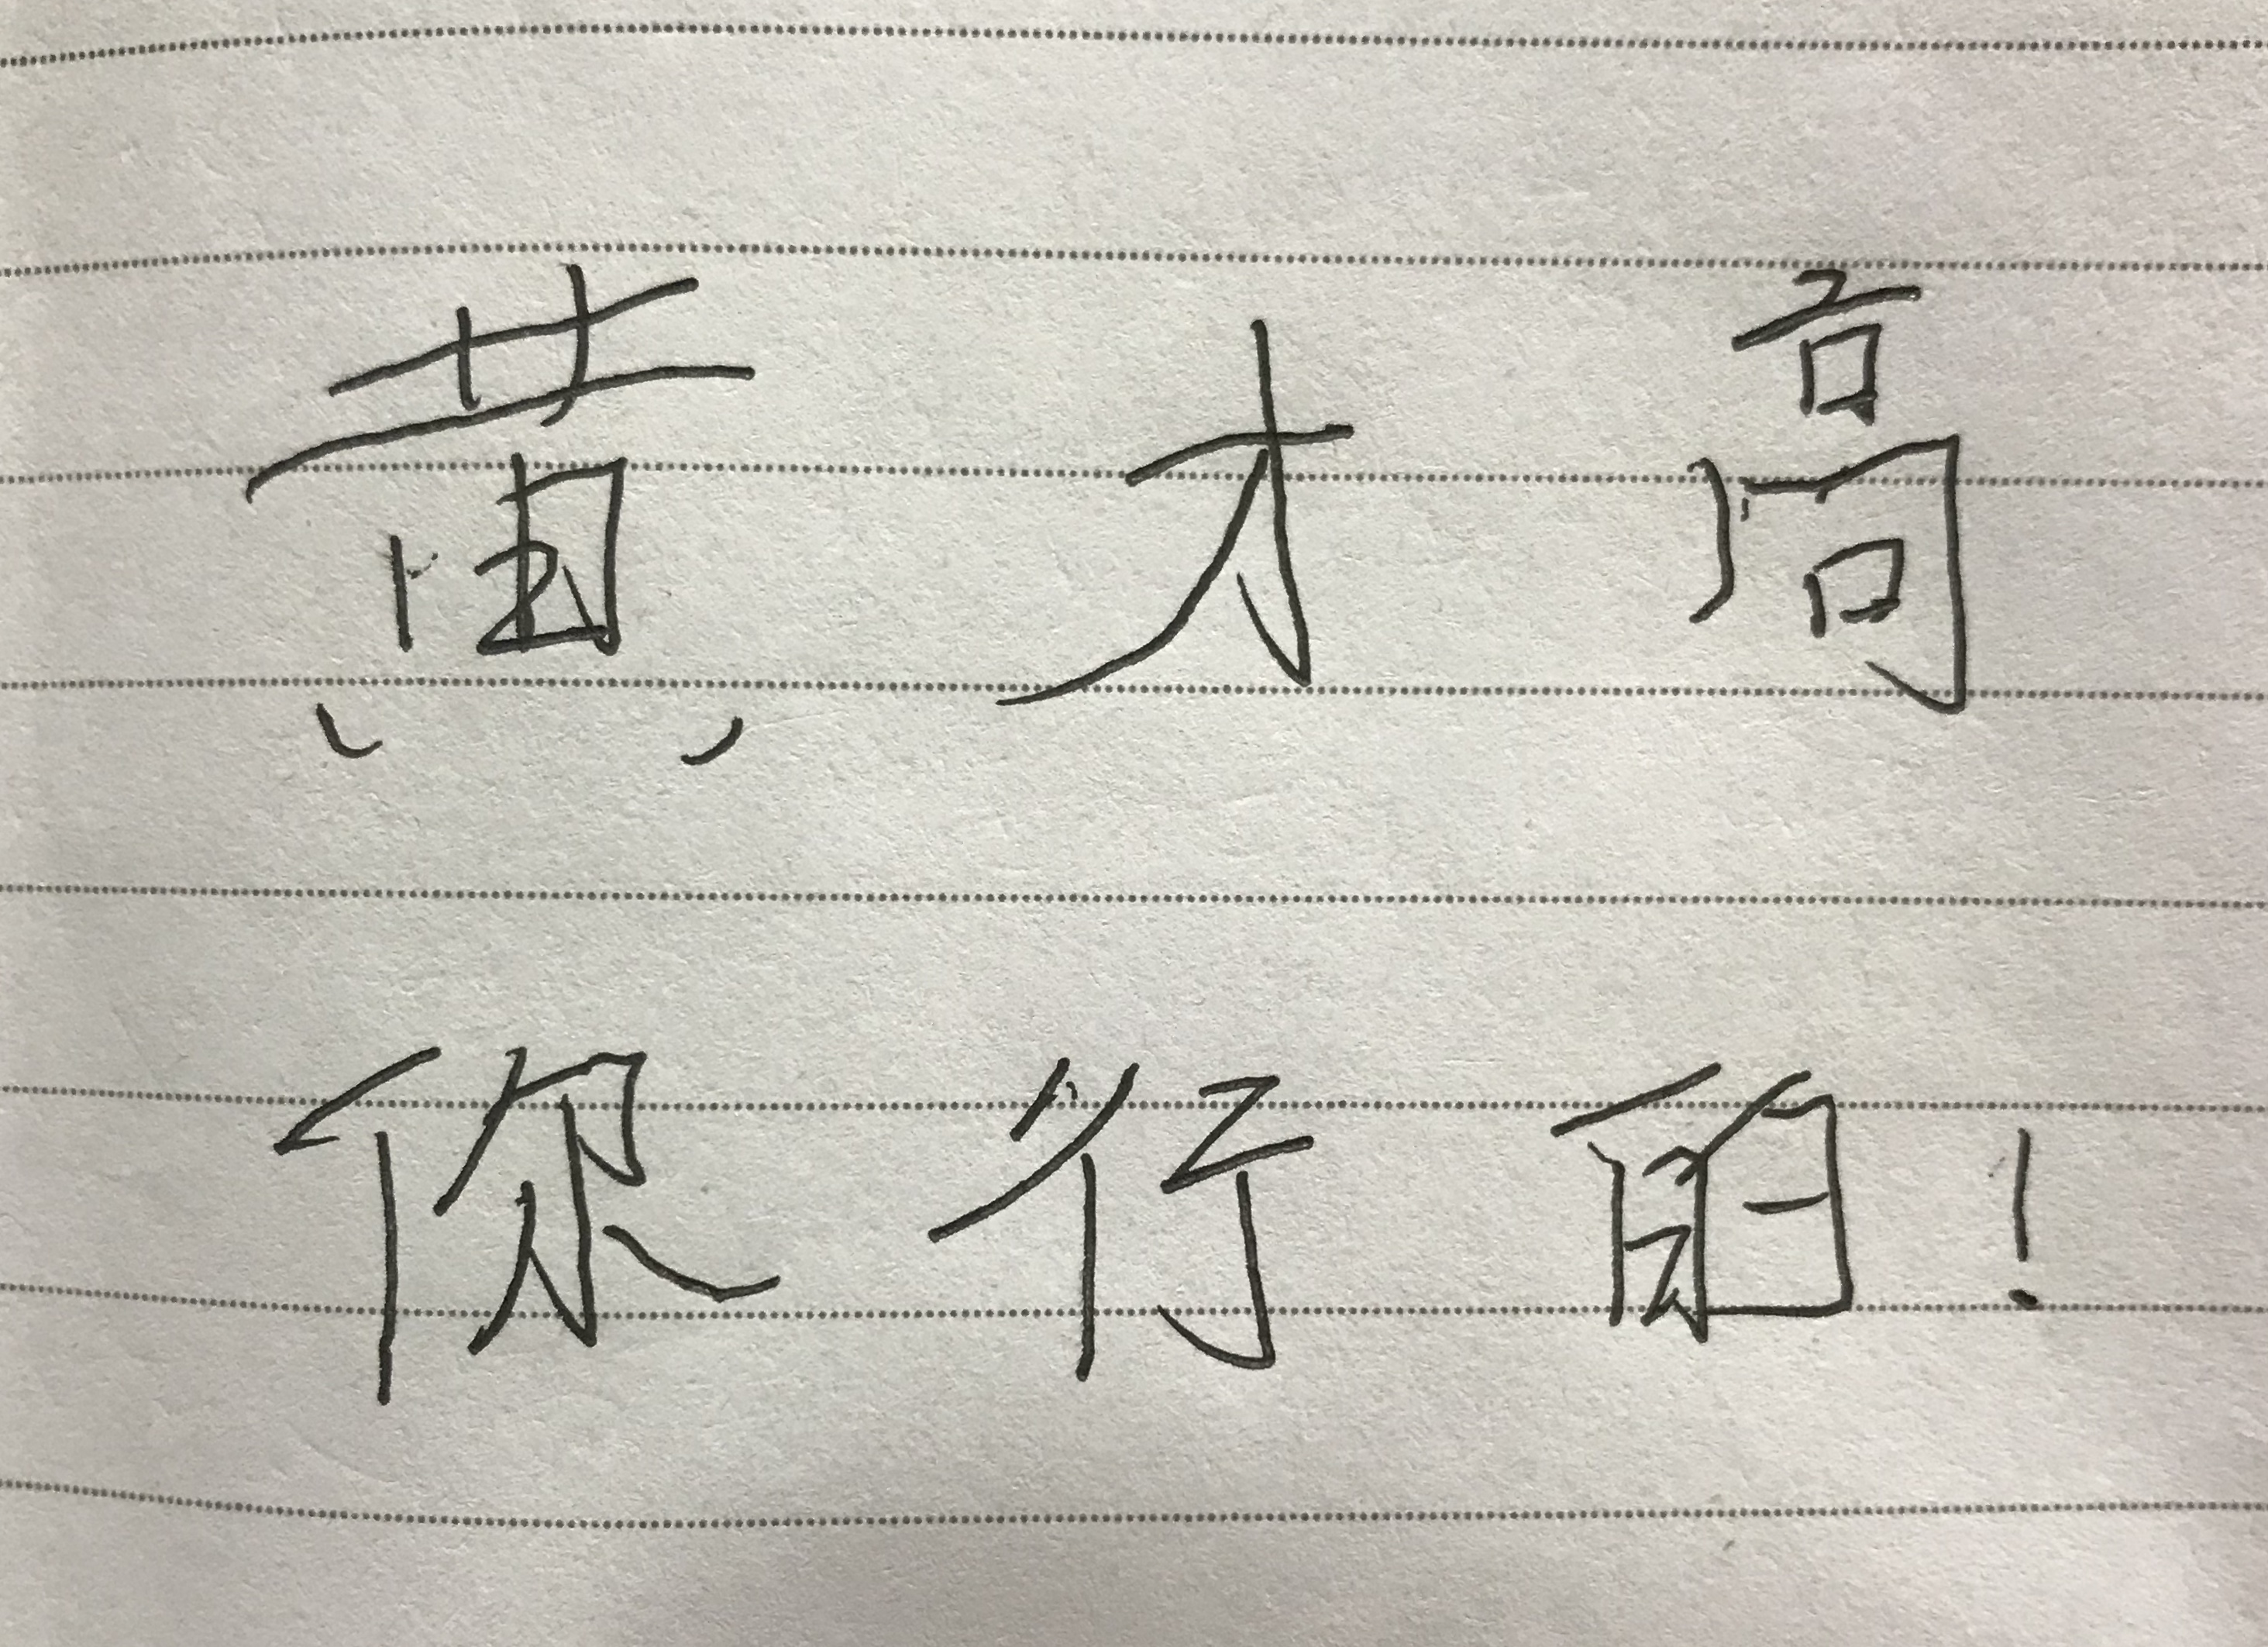 黄才高
你行的!